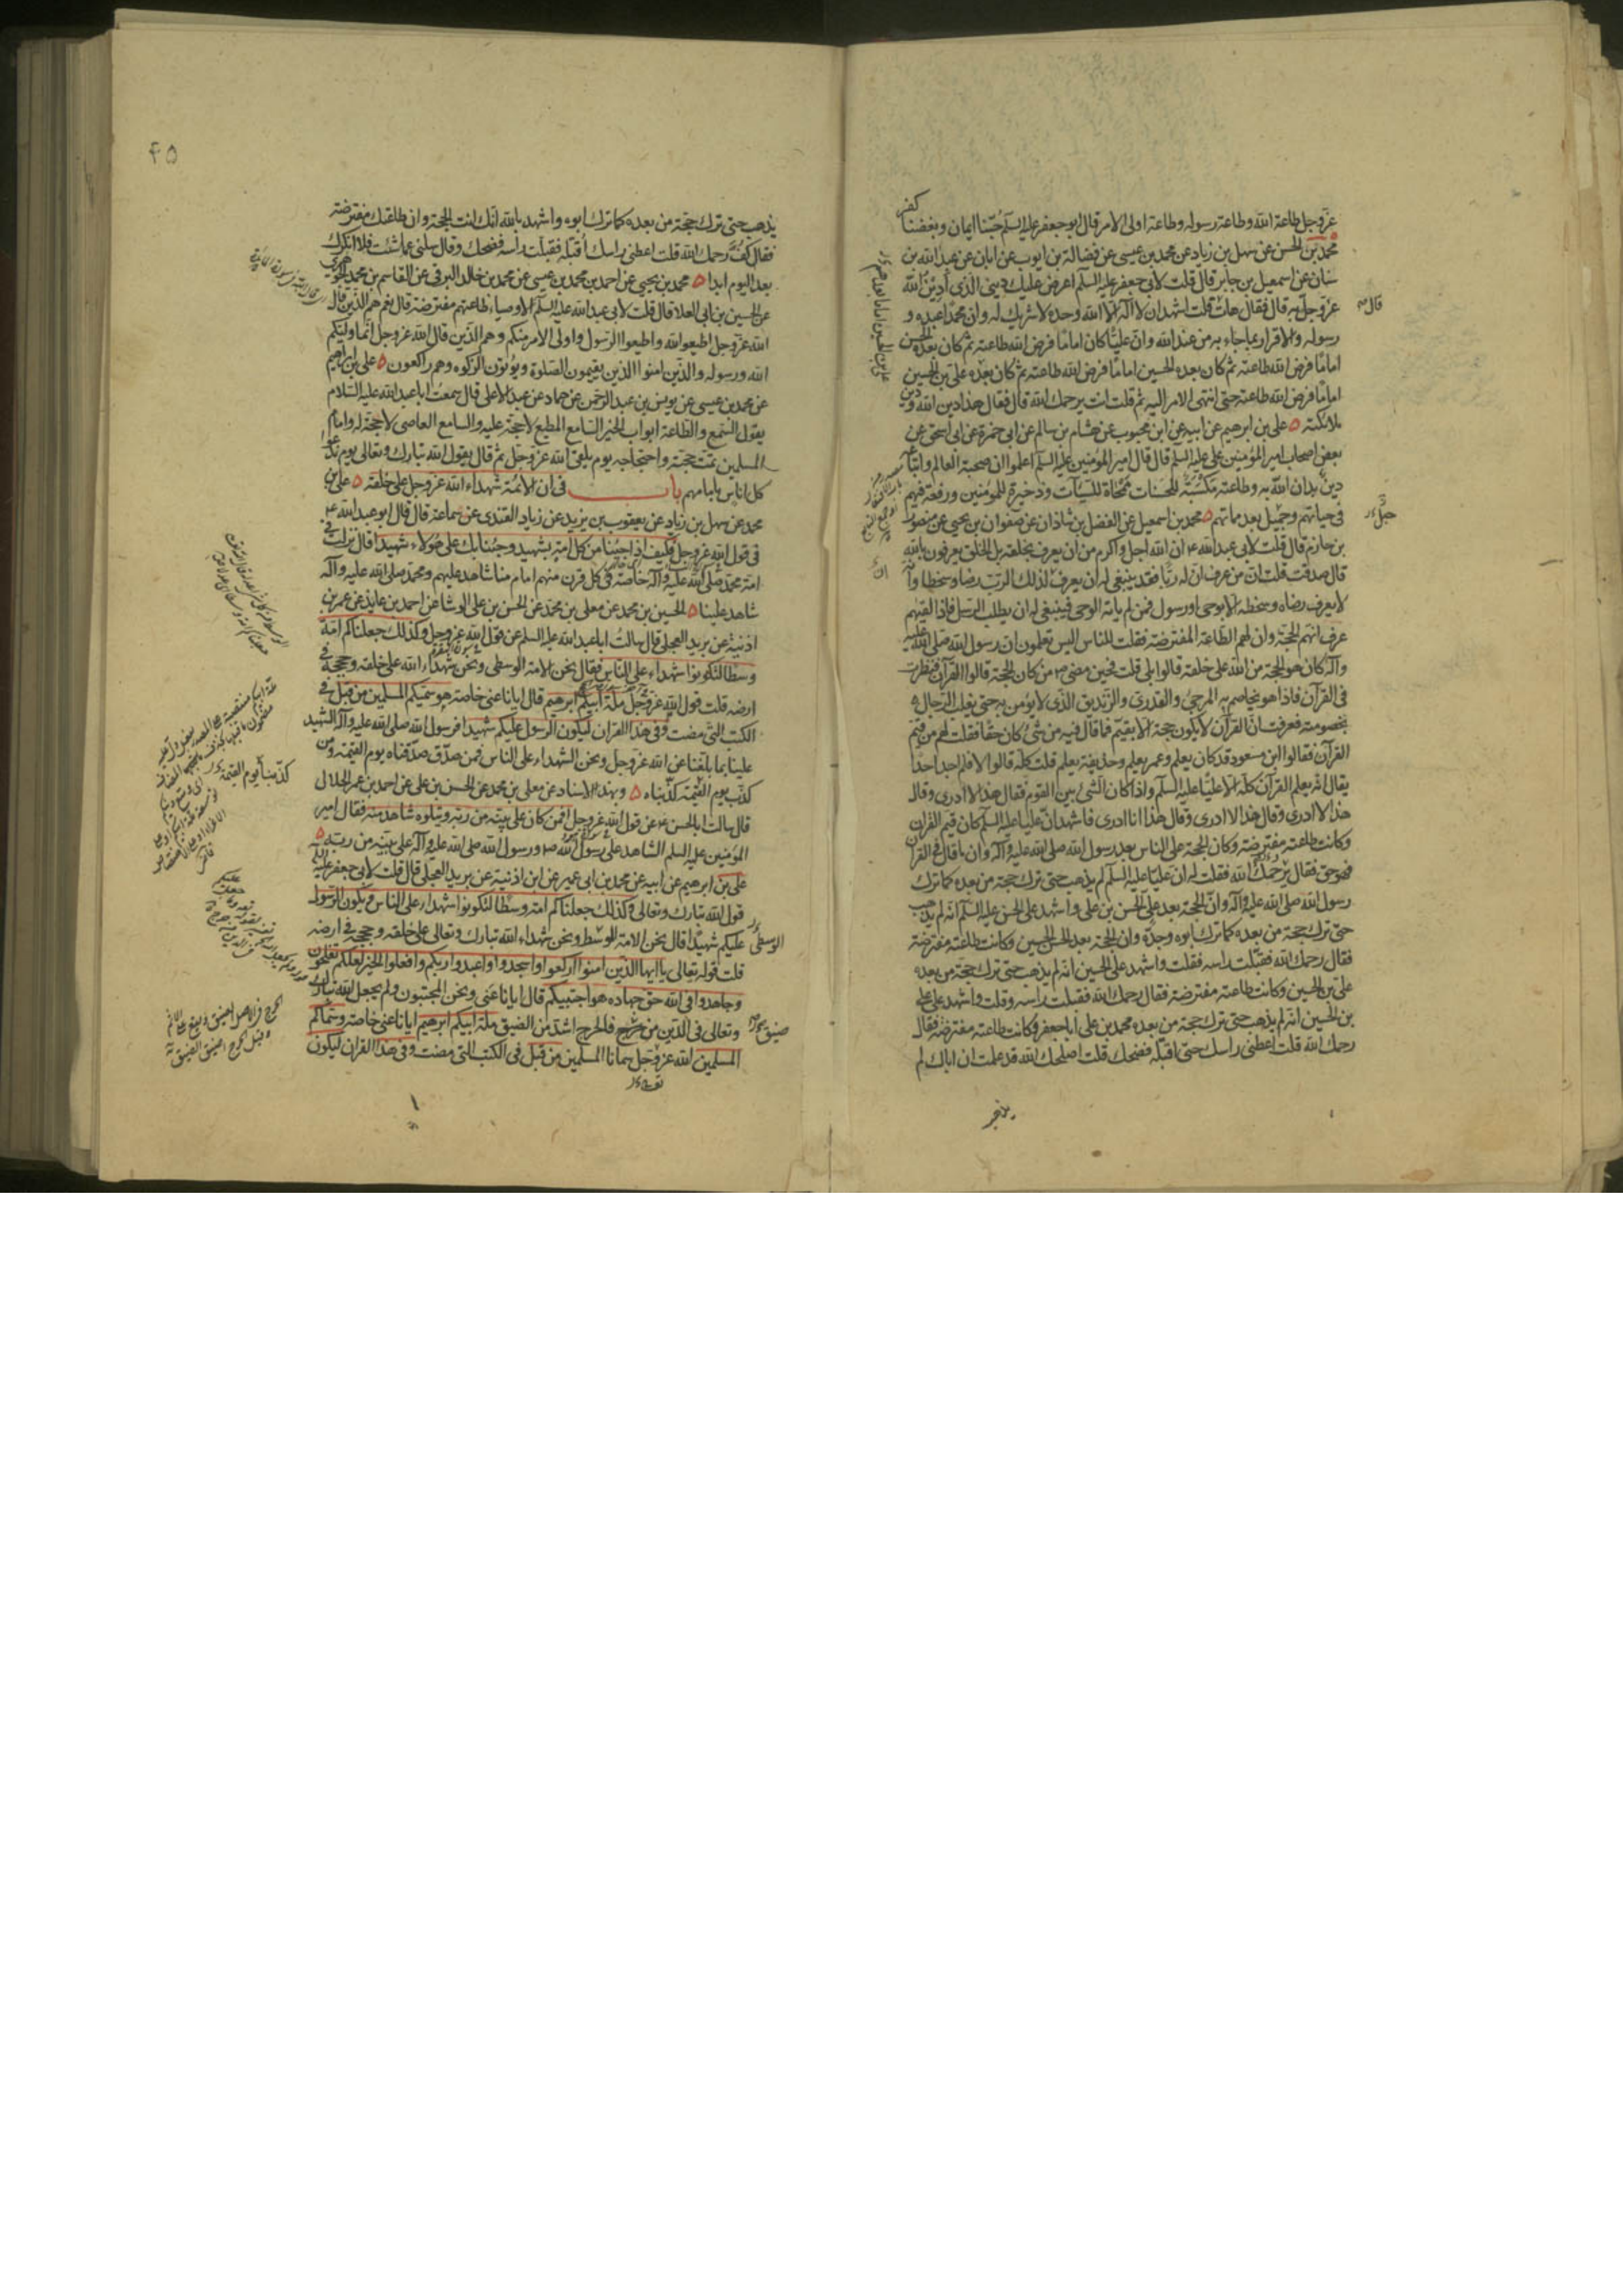 عزّوجل طاعة الله وطاعة رسوله وطاعة اولى الامر قال ابو جعفر عليه السلم حبّنا ايمان وبغضنا كفر
محمد بن الحسن عن سهل بن زياد عن محمد بن عيسى عن فضالة بن ايوب عن ابان عن عبد الله بن
سنان عن اسمعيل بن جابر قال قلت لأبي جعفر عليه السلم اعرض عليك ديني الذي أدين الله
عزّ وجلّ به قال فقال هات قلت اشهد ان لا اله الا الله وحده لا شريك له وان محمدا عبده و
رسوله والاقرار بما جاء به من عند الله وان عليّا كان اماما فرض الله طاعته ثم كان بعده الحسن
اماما فرض الله طاعته ثم كان بعده الحسين اماما فرض الله طاعته ثم كان بعده علي بن الحسين
اماما فرض الله طاعته حتى انتهى الامر اليه ثم قلت انت يرحمك الله قال فقال هذا دين الله ودين
ملائكته ه علي بن ابرهيم عن ابيه عن ابن محبوب عن هشام بن سالم عن ابي حمزة عن ابي اسحق عن
بعض اصحاب امير المؤمنين علي عليه السلم قال قال امير المؤمنين عليه السلم اعلموا ان صحبة العالم واتباعه
دين يدان الله به وطاعته مكسبة للحسنات ممحاة للسيّآت وذخيرة للمؤمنين ورفعة فيهم
في حياتهم وجميل بعد مماتهم ه محمد بن اسمعيل عن الفضل بن شاذان عن صفوان بن يحيى عن منصور
بن حازم قال قلت لابي عبد الله ع ان الله اجل واكرم من ان يعرف بخلقه بل الخلق يعرفون بالله
قال صدقت قلت ان من عرف ان له ربّا فقد ينبغي له ان يعرف لذلك الرب رضا وسخطا وانه
لا يعرف رضاه وسخطه الا بوحي او رسول فمن لم ياته الوحي فينبغي له ان يطلب الرسل فاذا لقيهم
عرف انهم الحجة وان لهم الطاعة المفترضة فقلت للناس اليس تعلمون ان رسول الله صلى الله عليه
وآله كان هو الحجة من الله على خلقه قالوا بلى قلت فحين مضى ص من كان الحجة قالوا القرآن فنظرت
في القرآن فاذا هو يخاصم به المرجئ والقدري والزنديق الذي لا يؤمن به حتى يغلب الرجال
بخصومته فعرفت ان القرآن لا يكون حجة الا بقيّم فما قال فيه من شئ كان حقا فقلت لهم من قيّم
القرآن فقالوا ابن مسعود قد كان يعلم وعمر يعلم وحذيفة يعلم قلت كله قالوا لا فلم اجد احدا
يقال انه يعلم القرآن كله الا عليّا عليه السلم واذا كان الشئ بين القوم فقال هذا لا ادري وقال
هذا لا ادري وقال هذا لا ادري وقال هذا انا ادري فاشهد ان عليا عليه السلم كان قيم القرآن
وكانت طاعته مفترضة وكان الحجة على الناس بعد رسول الله صلى الله عليه وآله وان ما قال في القرآن
فهو حق فقال يرحمك الله فقلت له ان عليّا عليه السلم لم يذهب حتى ترك حجة من بعده كما ترك
رسول الله صلى الله عليه وآله وان الحجة بعد علي الحسن بن علي واشهد على الحسن عليه السلم انه لم يذهب
حتى ترك حجة من بعده كما ترك ابوه وجدّه وان الحجة بعد الحسن الحسين وكانت طاعته مفترضة
فقال رحمك الله فقبّلت راسه فقلت واشهد على الحسين انه لم يذهب حتى ترك حجة من بعده
علي بن الحسين وكانت طاعته مفترضة فقال رحمك الله فقبلت راسه وقلت واشهد على علي
بن الحسين انه لم يذهب حتى ترك حجة من بعده محمد بن علي أبا جعفر وكانت طاعته مفترضة فقال
رحمك الله قلت اعطني راسك حتى اقبّله فضحك قلت اصلحك الله قد علمت ان اباك لم
قال
۴۵
يذهب حتى ترك حجّة من بعده كما ترك ابوه واشهد بالله انّك انت الحجة وان طاعتك مفترضة
فقال كفّ رحمك الله قلت اعطني راسك أقبّله فقبّلت راسه فضحك وقال سلني عما شئت فلا انكرك
بعد اليوم ابدا ه محمد بن يحيى عن احمد بن محمد بن عيسى عن محمد بن خالد البرقي عن القاسم بن محمد الجوهري
عن الحسين بن ابي العلا قال قلت لأبي عبد الله عليه السلم الاوصياء طاعتهم مفترضة قال نعم هم الذين قال
الله عزّوجل اطيعوا الله واطيعوا الرسول واولى الامر منكم وهم الذين قال الله عزوجل انما وليكم
الله ورسوله والذين امنوا الذين يقيمون الصلوة ويؤتون الزكوة وهم راكعون ه علي بن ابراهيم
عن محمد بن عيسى عن يونس بن عبد الرحمن عن حماد عن عبد الاعلى قال سمعت ابا عبد الله عليه السلام
يقول السمع والطاعة ابواب الخير السامع المطيع لا حجة عليه والسامع العاصي لا حجة له وامام
المسلمين تمت حجته واحتجاجه يوم يلقى الله عزوجل ثم قال يقول الله تبارك وتعالى يوم ندعوا
كل اناس بامامهم باب في ان الائمة شهداء الله عزوجل على خلقه ه علي بن
محمد عن سهل بن زياد عن يعقوب بن يزيد عن زياد القندي عن سماعة قال قال ابو عبد الله ع
في قول الله عزوجل فكيف اذا جئنا من كل امة بشهيد وجئنا بك على هؤلاء شهيدا قال نزلت في
امة محمد صلى الله عليه وآله خاصّة في كل قرن منهم امام منا شاهد عليهم ومحمد صلى الله عليه وآله
شاهد علينا ه الحسين بن محمد عن معلى بن محمد عن الحسن بن علي الوشا عن احمد بن عايذ عن عمر بن
اذنية عن بريد العجلي قال سالت ابا عبد الله عليه السلم عن قول الله عزوجل وكذلك جعلناكم امة
وسطا لتكونوا شهداء على الناس فقال نحن الامة الوسطى ونحن شهداء الله على خلقه وحججه في
ارضه قلت قول الله عزوجل ملة ابيكم ابرهيم قال ايانا عنى خاصة هو سميكم المسلمين من قبل في
الكتب التي مضت وفي هذا القران ليكون الرسول عليكم شهيدا فرسول الله صلى الله عليه وآله الشهيد
علينا بما بلغنا عن الله عزوجل ونحن الشهداء على الناس فمن صدّق صدّقناه يوم القيمة ومن
كذّب يوم القيمة كذّبناه ه وبهذا الاسناد عن معلى بن محمد عن الحسن بن علي عن احمد بن عمر الحلال
قال سالت ابا الحسن ع عن قول الله عزوجل افمن كان على بينة من ربه ويتلوه شاهد منه فقال امير
المؤمنين عليه السلم الشاهد على رسول الله ص ورسول الله صلى الله عليه وآله على بيّنة من ربه ه
علي بن ابرهيم عن ابيه عن محمد بن ابي عمير عن ابن اذنية عن بريد العجلي قال قلت لأبي جعفر عليه السلم
قول الله تبارك وتعالى وكذلك جعلناكم امة وسطا لتكونوا شهداء على الناس ويكون الرسول
عليكم شهيدا قال نحن الامة الوسط ونحن شهداء الله تبارك وتعالى على خلقه وحججه في ارضه
قلت قوله تعالى يا ايها الذين امنوا اركعوا واسجدوا واعبدوا ربكم وافعلوا الخير لعلكم تفلحون
وجاهدوا في الله حق جهاده هو اجتبيكم قال ايانا عنى ونحن المجتبون ولم يجعل الله تبارك
وتعالى في الدين من حرج فالحرج اشدّ من الضيق ملة ابيكم ابرهيم ايانا عنى خاصة وسمّاكم
المسلمين الله عزوجل سمانا المسلمين من قبل في الكتب التي مضت وفي هذا القران ليكون
الوسطى
كذّبناه يوم القيمة
ضيق